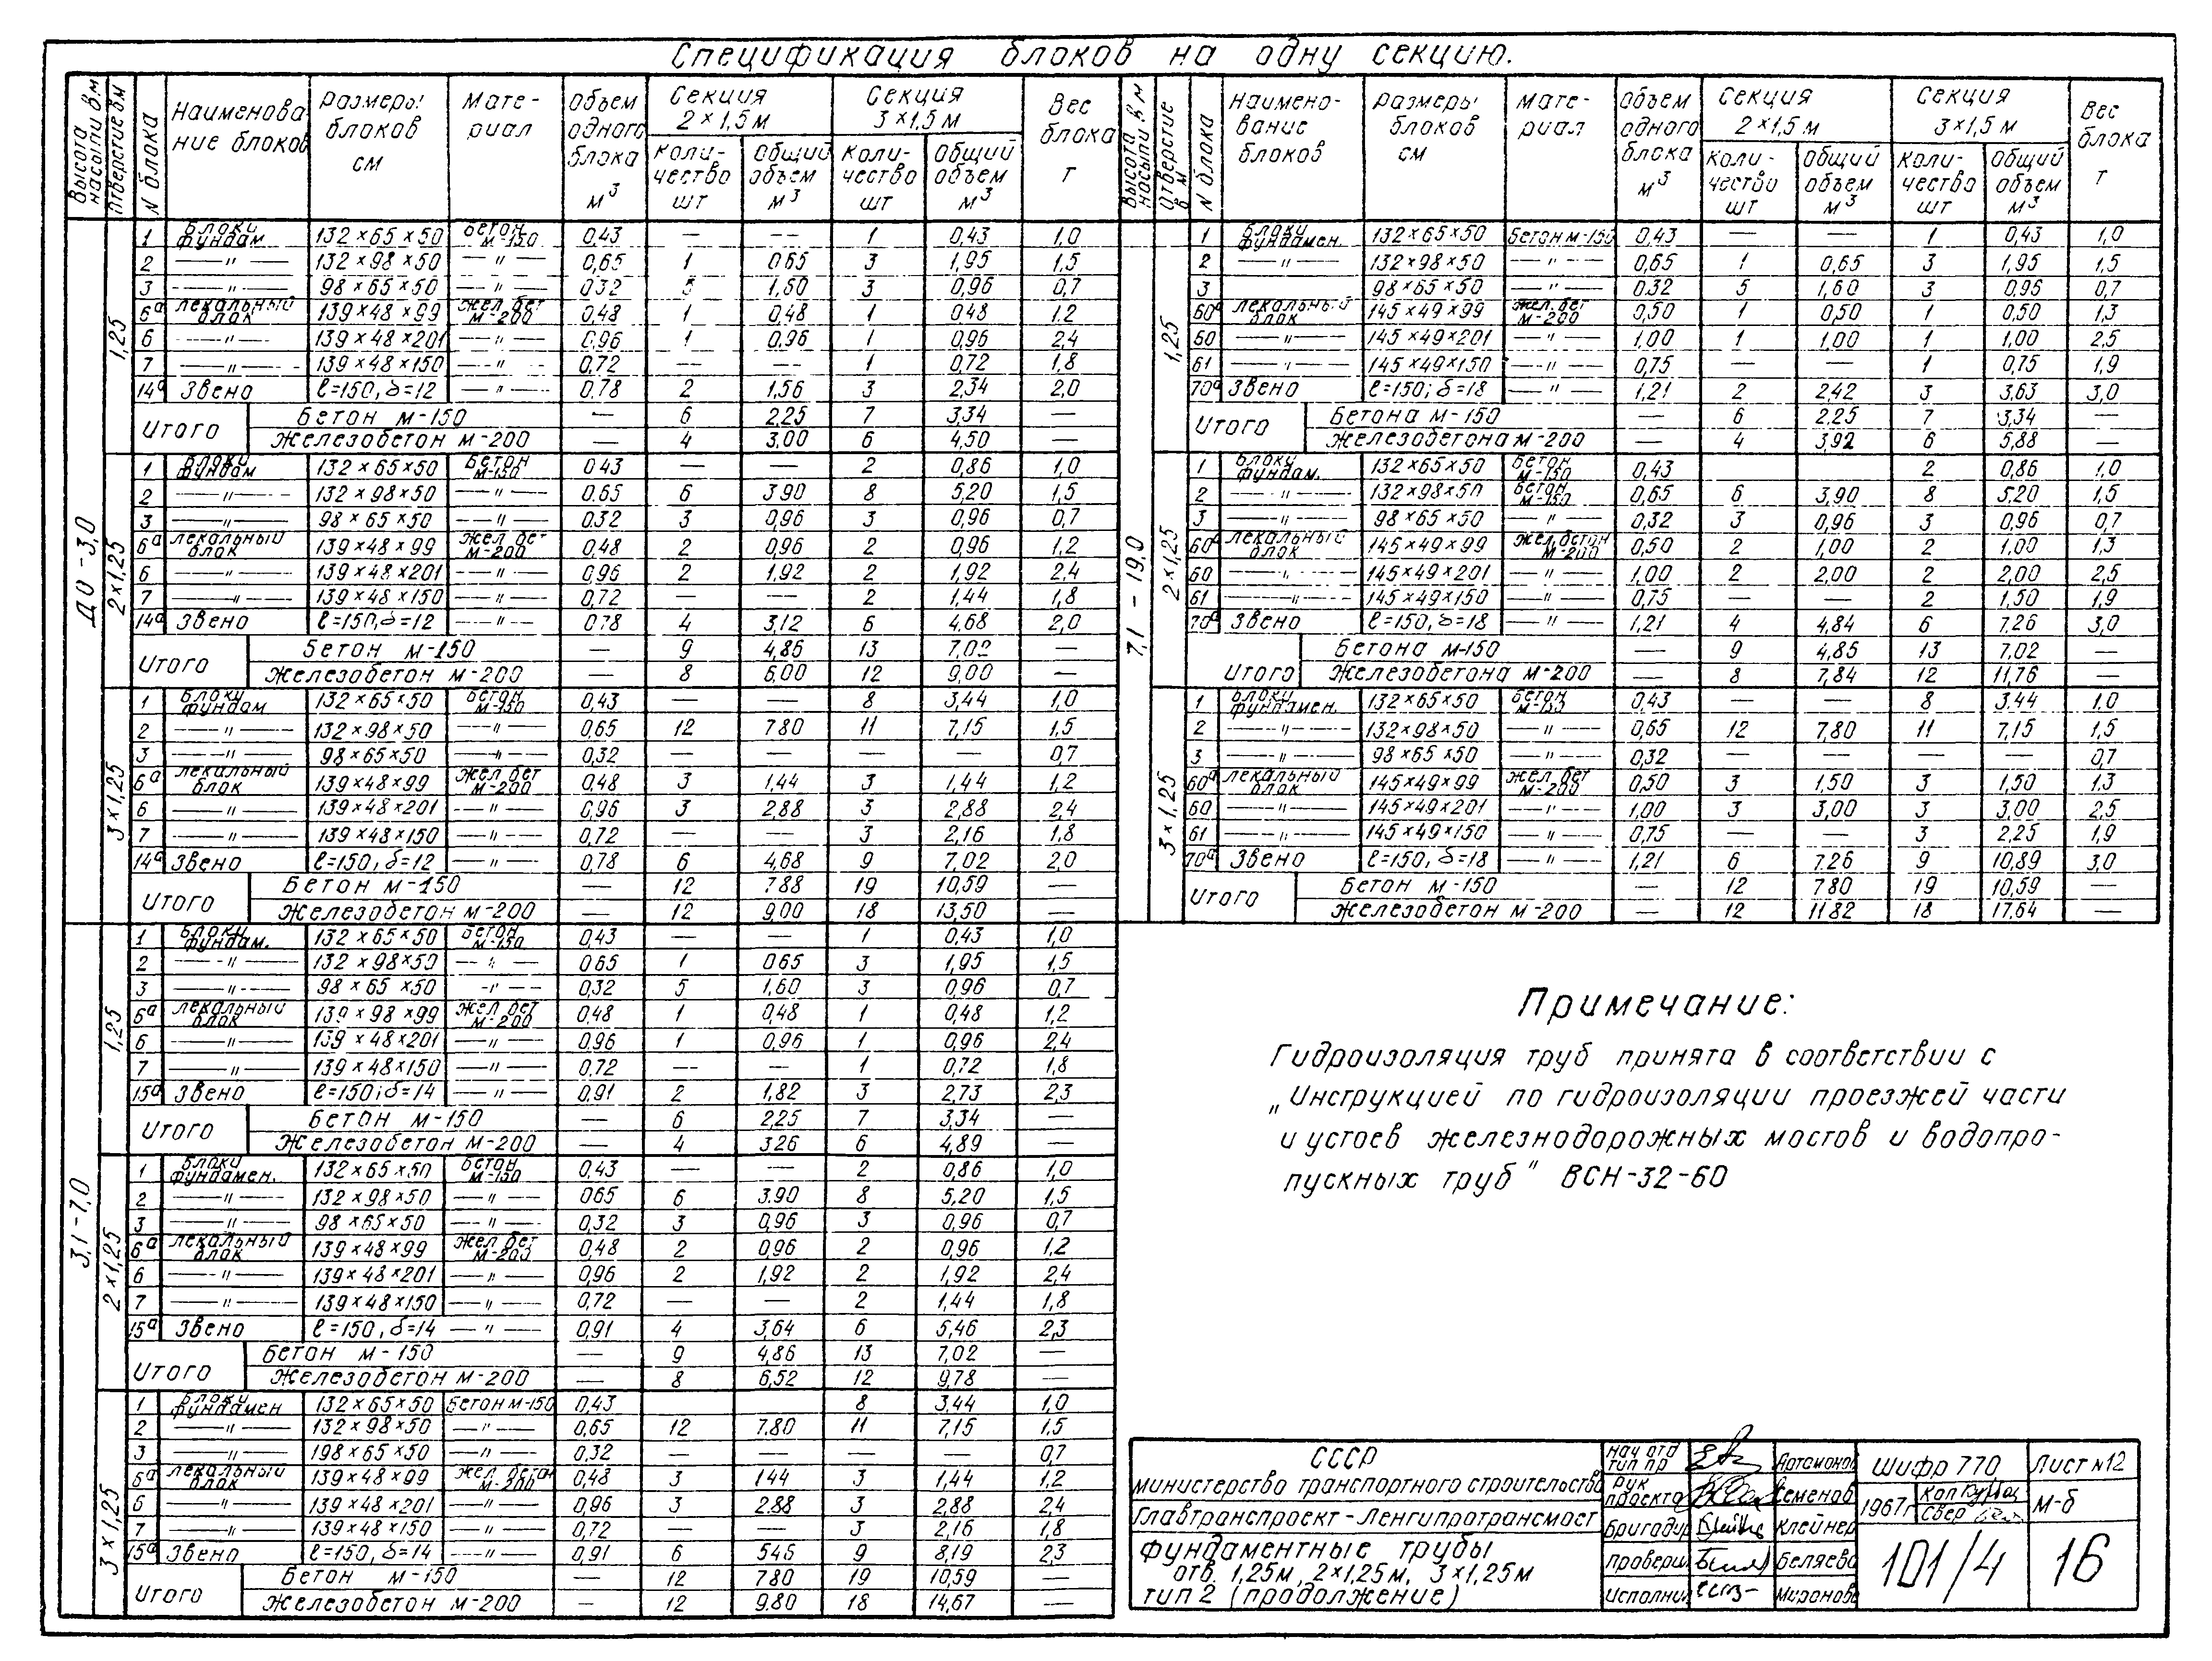 Спецификация блоков на одну секцию.
Высота насыпи в м | Отверстие в м | N блока | Наименование блоков | Размеры блоков см | Материал | Объем одного блока м³ | Секция 2×1,5 м | Секция 3×1,5 м | Вес блока т
Количество шт | Общий объем м³ | Количество шт | Общий объем м³
До - 3,0
1,25
1 Блоки фундам 132×65×50 Бетон м-150 0,43 — — 1 0,43 1,0
2 —"— 132×98×50 —"— 0,65 1 0,65 3 1,95 1,5
3 —"— 98×65×50 —"— 0,32 5 1,60 3 0,96 0,7
6а лекальный блок 139×48×99 Жел.бет м-200 0,48 1 0,48 1 0,48 1,2
6 —"— 139×48×201 —"— 0,96 1 0,96 1 0,96 2,4
7 —"— 139×48×150 —"— 0,72 — — 1 0,72 1,8
14а Звено ℓ=150, δ=12 —"— 0,78 2 1,56 3 2,34 2,0
Итого Бетон м-150 — 6 2,25 7 3,34 —
Железобетон м-200 — 4 3,00 6 4,50 —
2×1,25
1 Блоки фундам 132×65×50 Бетон м-150 0,43 — — 2 0,86 1,0
2 —"— 132×98×50 —"— 0,65 6 3,90 8 5,20 1,5
3 —"— 98×65×50 —"— 0,32 3 0,96 3 0,96 0,7
6а лекальный блок 139×48×99 Жел бет м-200 0,48 2 0,96 2 0,96 1,2
6 —"— 139×48×201 —"— 0,96 2 1,92 2 1,92 2,4
7 —"— 139×48×150 —"— 0,72 — — 2 1,44 1,8
14а Звено ℓ=150, δ=12 —"— 0,78 4 3,12 6 4,68 2,0
Итого Бетон м-150 — 9 4,86 13 7,02 —
Железобетон м-200 — 8 6,00 12 9,00 —
3×1,25
1 Блоки фундам 132×65×50 Бетон м-150 0,43 — — 8 3,44 1,0
2 —"— 132×98×50 —"— 0,65 12 7,80 11 7,15 1,5
3 —"— 98×65×50 —"— 0,32 — — — — 0,7
6а лекальный блок 139×48×99 Жел.бет м-200 0,48 3 1,44 3 1,44 1,2
6 —"— 139×48×201 —"— 0,96 3 2,88 3 2,88 2,4
7 —"— 139×48×150 —"— 0,72 — — 3 2,16 1,8
14а Звено ℓ=150, δ=12 —"— 0,78 6 4,68 9 7,02 2,0
Итого Бетон м-150 — 12 7,88 19 10,59 —
Железобетон м-200 — 12 9,00 18 13,50 —
3,1-7,0
1,25
1 Блоки фундам. 132×65×50 Бетон м-150 0,43 — — 1 0,43 1,0
2 —"— 132×98×50 —"— 0,65 1 0,65 3 1,95 1,5
3 —"— 98×65×50 —"— 0,32 5 1,60 3 0,96 0,7
6а лекальный блок 139×98×99 Жел бет м-200 0,48 1 0,48 1 0,48 1,2
6 —"— 139×48×201 —"— 0,96 1 0,96 1 0,96 2,4
7 —"— 139×48×150 —"— 0,72 — — 1 0,72 1,8
15а Звено ℓ=150; δ=14 —"— 0,91 2 1,82 3 2,73 2,3
Итого Бетон м-150 — 6 2,25 7 3,34 —
Железобетон м-200 — 4 3,26 6 4,89 —
2×1,25
1 Блоки фундамен. 132×65×50 Бетон м-150 0,43 — — 2 0,86 1,0
2 —"— 132×98×50 —"— 0,65 6 3,90 8 5,20 1,5
3 —"— 98×65×50 —"— 0,32 3 0,96 3 0,96 0,7
6а лекальный блок 139×48×99 Жел бет м-200 0,48 2 0,96 2 0,96 1,2
6 —"— 139×48×201 —"— 0,96 2 1,92 2 1,92 2,4
7 —"— 139×48×150 —"— 0,72 — — 2 1,44 1,8
15а Звено ℓ=150, δ=14 —"— 0,91 4 3,64 6 5,46 2,3
Итого Бетон м-150 — 9 4,86 13 7,02 —
Железобетон м-200 — 8 6,52 12 9,78 —
3×1,25
1 Блоки фундамен 132×65×50 Бетон м-150 0,43 8 3,44 1,0
2 —"— 132×98×50 —"— 0,65 12 7,80 11 7,15 1,5
3 —"— 198×65×50 —"— 0,32 — — — — 0,7
6а лекальный блок 139×48×99 Жел бетон м-200 0,48 3 1,44 3 1,44 1,2
6 —"— 139×48×201 —"— 0,96 3 2,88 3 2,88 2,4
7 —"— 139×48×150 —"— 0,72 — — 3 2,16 1,8
15а Звено ℓ=150, δ=14 —"— 0,91 6 5,46 9 8,19 2,3
Итого Бетон м-150 — 12 7,80 19 10,59 —
Железобетон м-200 — 12 9,80 18 14,67 —
Высота насыпи в м | Отверстие в м | N блока | Наименование блоков | Размеры блоков см | Материал | Объем одного блока м³ | Секция 2×1,5 м | Секция 3×1,5 м | Вес блока т
Количество шт | Общий объем м³ | Количество шт | Общий объем м³
7,1 - 19,0
1,25
1 Блоки фундамен. 132×65×50 Бетон м-150 0,43 — — 1 0,43 1,0
2 —"— 132×98×50 —"— 0,65 1 0,65 3 1,95 1,5
3 —"— 98×65×50 —"— 0,32 5 1,60 3 0,96 0,7
60а лекальный блок 145×49×99 Жел.бет м-200 0,50 1 0,50 1 0,50 1,3
60 —"— 145×49×201 —"— 1,00 1 1,00 1 1,00 2,5
61 —"— 145×49×150 —"— 0,75 — — 1 0,75 1,9
70а Звено ℓ=150; δ=18 —"— 1,21 2 2,42 3 3,63 3,0
Итого Бетона м-150 — 6 2,25 7 3,34 —
Железобетона м-200 — 4 3,92 6 5,88 —
2×1,25
1 Блоки фундам. 132×65×50 Бетон м-150 0,43 2 0,86 1,0
2 —"— 132×98×50 Бетон м-150 0,65 6 3,90 8 5,20 1,5
3 —"— 98×65×50 —"— 0,32 3 0,96 3 0,96 0,7
60а лекальный блок 145×49×99 Жел.бетон м-200 0,50 2 1,00 2 1,00 1,3
60 —"— 145×49×201 —"— 1,00 2 2,00 2 2,00 2,5
61 —"— 145×49×150 —"— 0,75 — — 2 1,50 1,9
70а Звено ℓ=150, δ=18 —"— 1,21 4 4,84 6 7,26 3,0
Итого Бетона м-150 — 9 4,85 13 7,02 —
Железобетона м-200 — 8 7,84 12 11,76 —
3×1,25
1 Блоки фундамен. 132×65×50 Бетон м-150 0,43 — — 8 3,44 1,0
2 —"— 132×98×50 —"— 0,65 12 7,80 11 7,15 1,5
3 —"— 98×65×50 —"— 0,32 — — — — 0,7
60а лекальный блок 145×49×99 Жел.бет м-200 0,50 3 1,50 3 1,50 1,3
60 —"— 145×49×201 —"— 1,00 3 3,00 3 3,00 2,5
61 —"— 145×49×150 —"— 0,75 — — 3 2,25 1,9
70а Звено ℓ=150, δ=18 —"— 1,21 6 7,26 9 10,89 3,0
Итого Бетон м-150 — 12 7,80 19 10,59 —
Железобетон м-200 — 12 11,82 18 17,64 —
Примечание:
Гидроизоляция труб принята в соответствии с
„Инструкцией по гидроизоляции проезжей части
и устоев железнодорожных мостов и водопро-
пускных труб" ВСН-32-60
СССР
министерство транспортного строительства
Главтранспроект-Ленгипротрансмост
Фундаментные трубы
отв. 1,25м, 2×1,25м, 3×1,25м
тип 2 (продолжение)
нач отд тип пр Артамонов
рук проекта Семенов
бригадир Клейнер
провери. Беляева
Исполнил Миронова
Шифр 770 Лист №12
1967г Коп Свер М-б
101/4 16